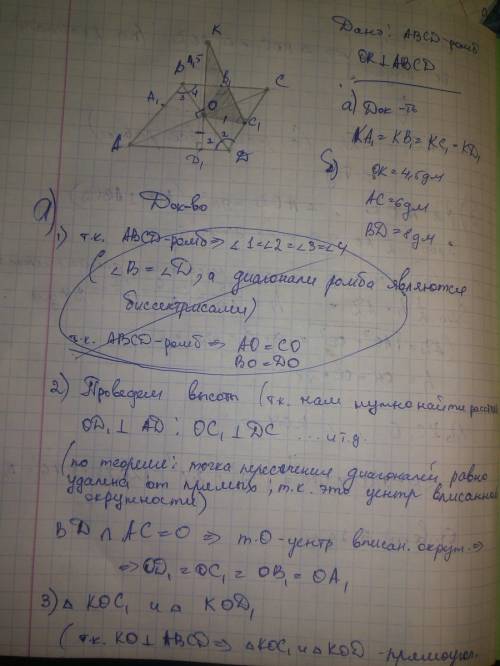 K
Дано: ABCD-ромб
OK ⊥ ABCD
а) Док-ть
KA₁ = KB₁ = KC₁ = KD₁
б) OK = 4,5 дм
AC = 6 дм
BD = 8 дм
4,5
B
B₁
C
A₁
3
4
O
1
C₁
A
2
2
D₁
D
а)
Док-во
1) т.к. ABCD-ромб ⇒ ∠1=∠2=∠3=∠4
(∠B = ∠D, а диагонали ромба являются
биссектрисами)
т.к. ABCD-ромб ⇒ AO = CO
BO = DO
2) Проведем высоты (т.к. нам нужно найти
OD₁ ⊥ AD; OC₁ ⊥ DC ... и т.д.
(по теореме: точка пересечения диагоналей равно
удалена от прямых; т.к. это центр вписанной
окружности)
BD ∩ AC = O ⇒ т.O-центр вписан. окруж. ⇒
⇒ OD₁ = OC₁ = OB₁ = OA₁
3) △ KOC₁ и △ KOD₁
(т.к. KO ⊥ ABCD ⇒ △KOC₁ и △KOD -прямоугол.